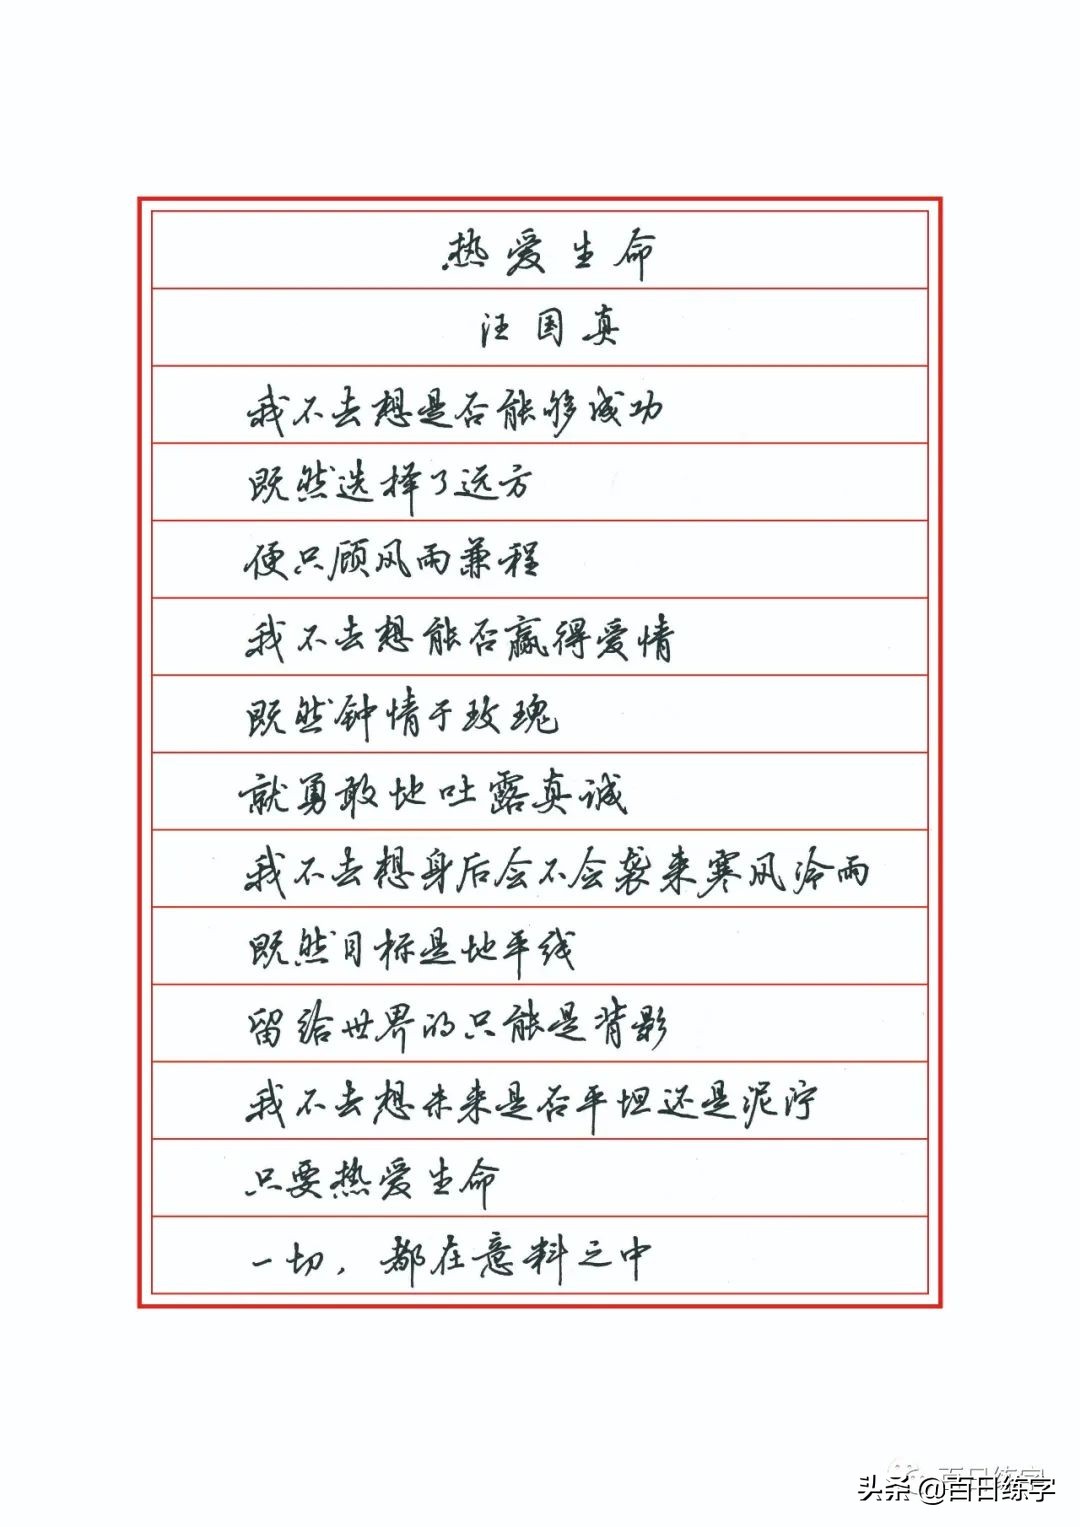 热爱生命
汪国真
我不去想是否能够成功
既然选择了远方
便只顾风雨兼程
我不去想能否赢得爱情
既然钟情于玫瑰
就勇敢地吐露真诚
我不去想身后会不会袭来寒风冷雨
既然目标是地平线
留给世界的只能是背影
我不去想未来是否平坦还是泥泞
只要热爱生命
一切，都在意料之中
百日练字
头条 @百日练字